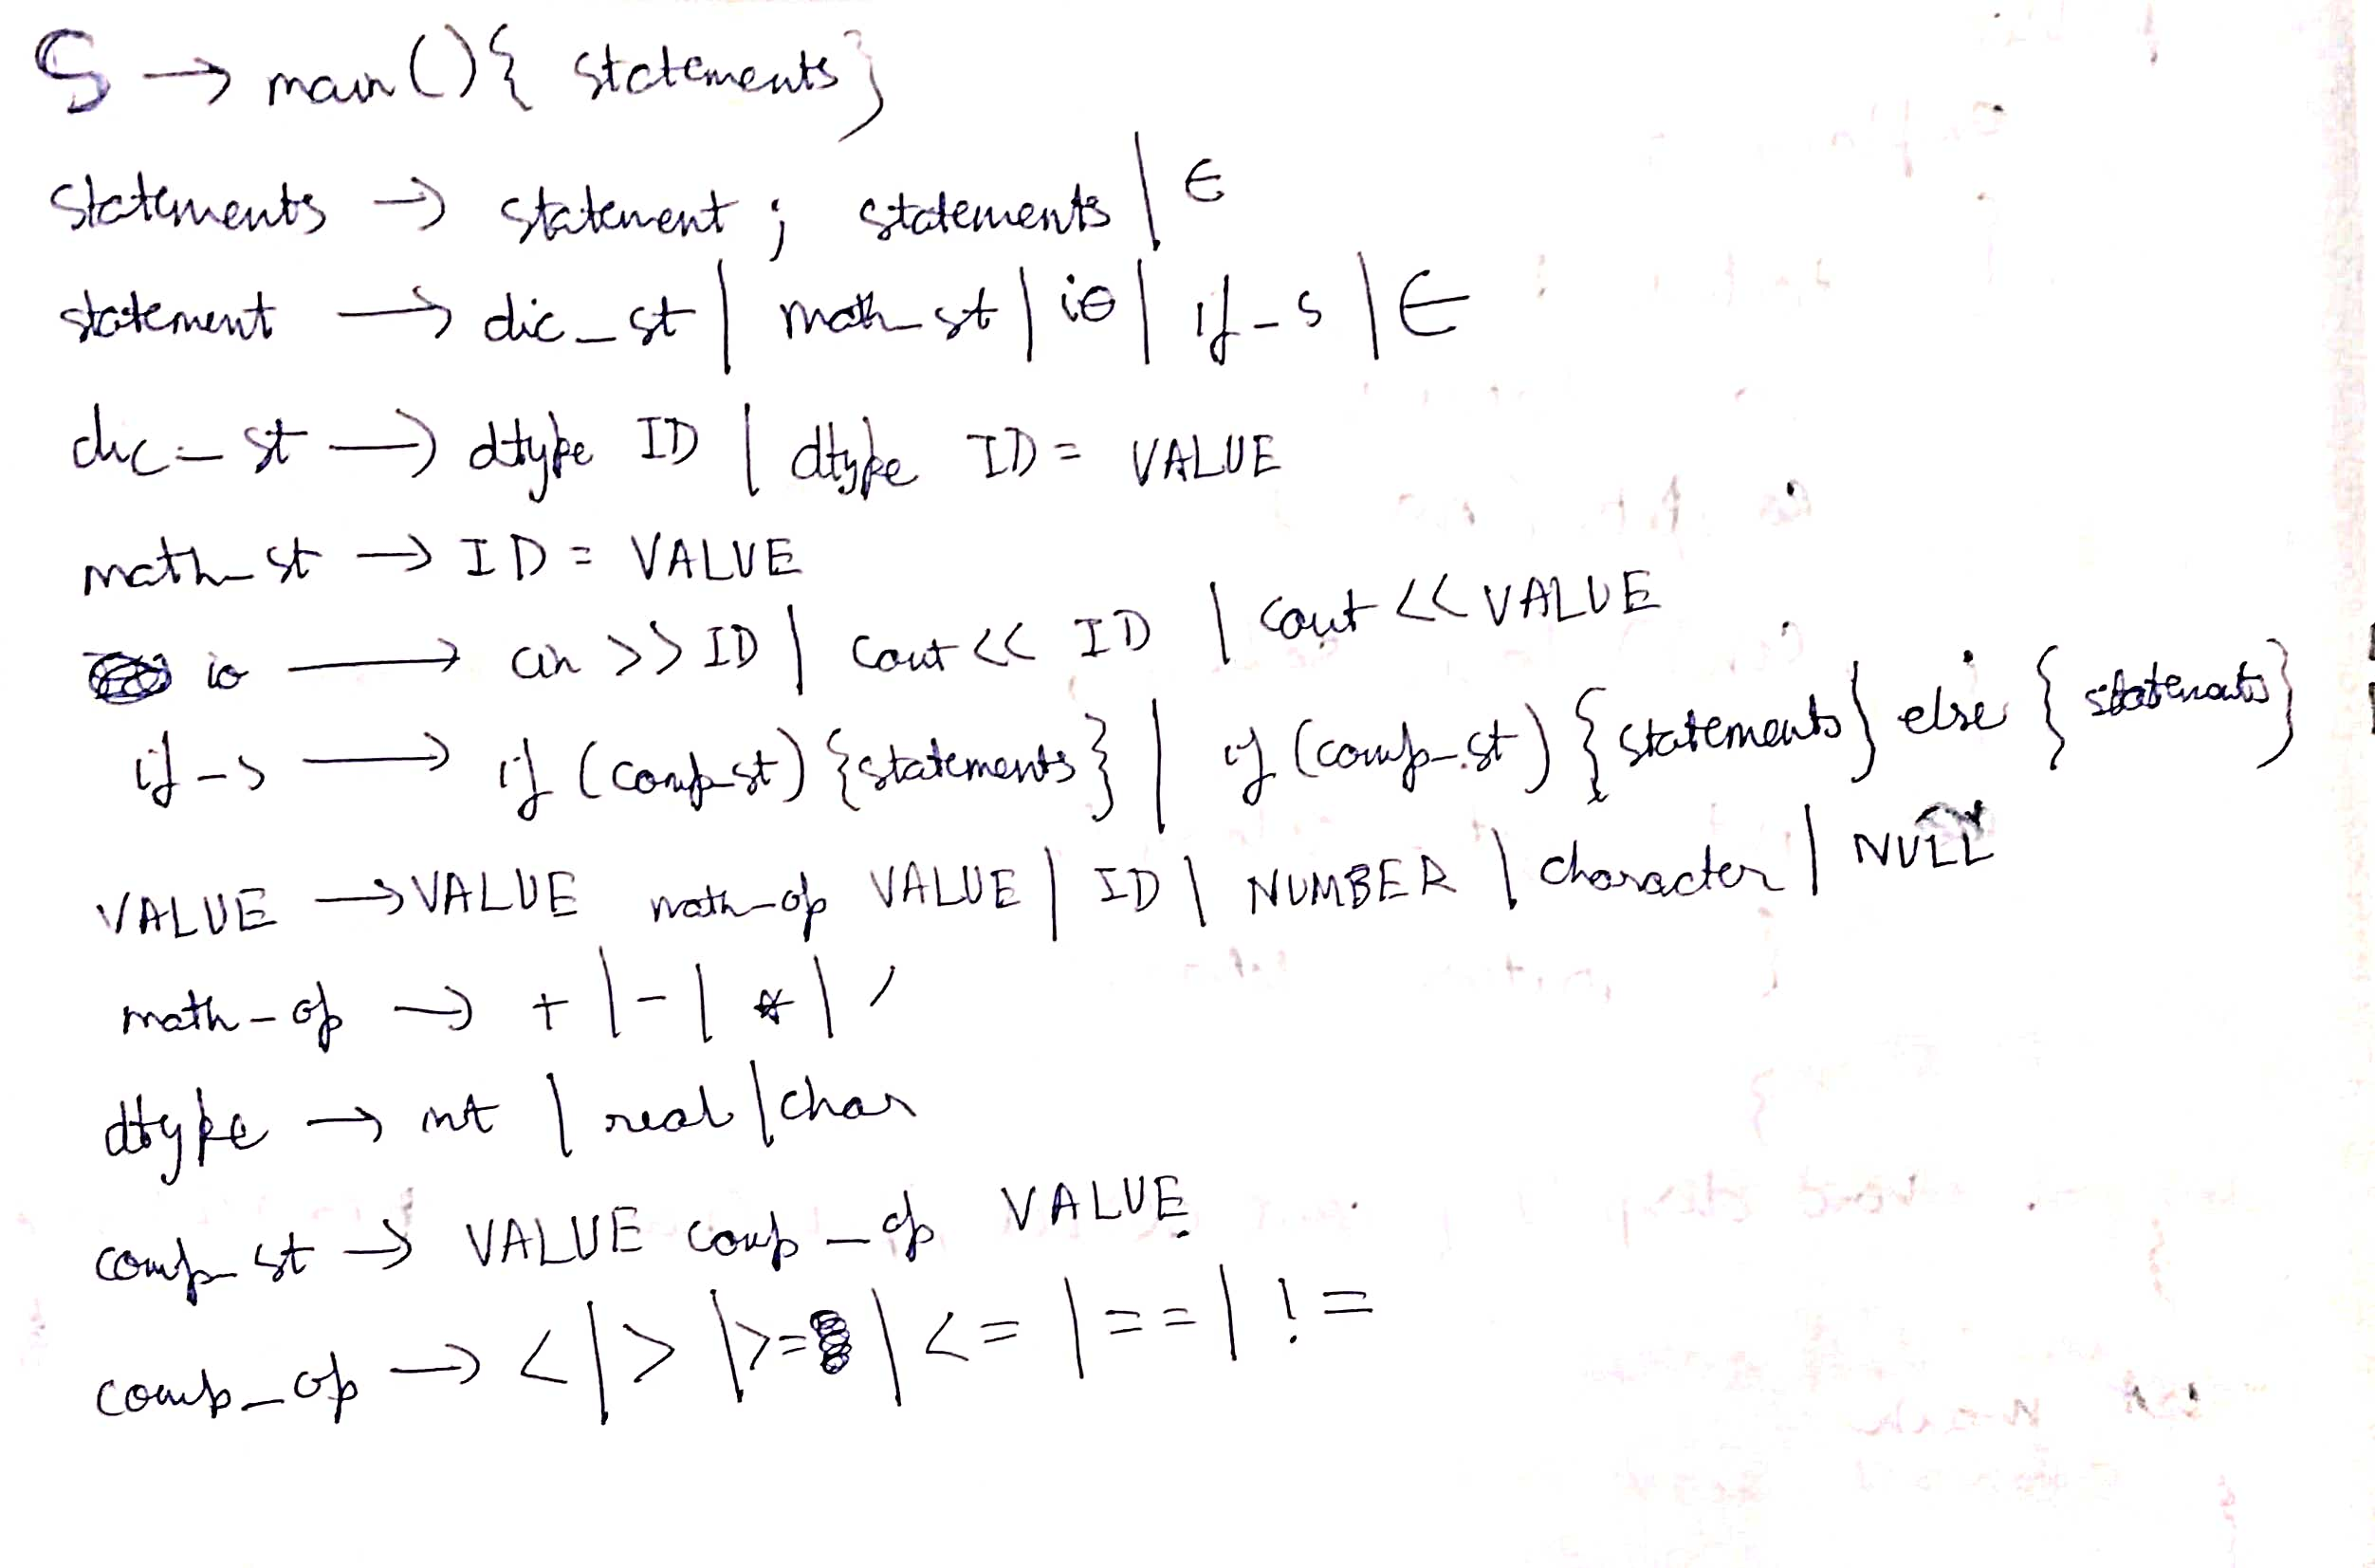 S → main(){ statements}
statements → statement ; statements | ∈
statement → dic_st | math_st | io | if_s | ∈
dic_st → dtype ID | dtype ID = VALUE
math_st → ID = VALUE
io → cin >> ID | cout << ID | cout << VALUE
if_s → if (comp_st) {statements} | if (comp_st) {statements} else {statements}
VALUE → VALUE math_op VALUE | ID | NUMBER | character | NULL
math_op → + | - | * | /
dtype → int | real | char
comp_st → VALUE comp_op VALUE
comp_op → < | > | >= | <= | == | !=